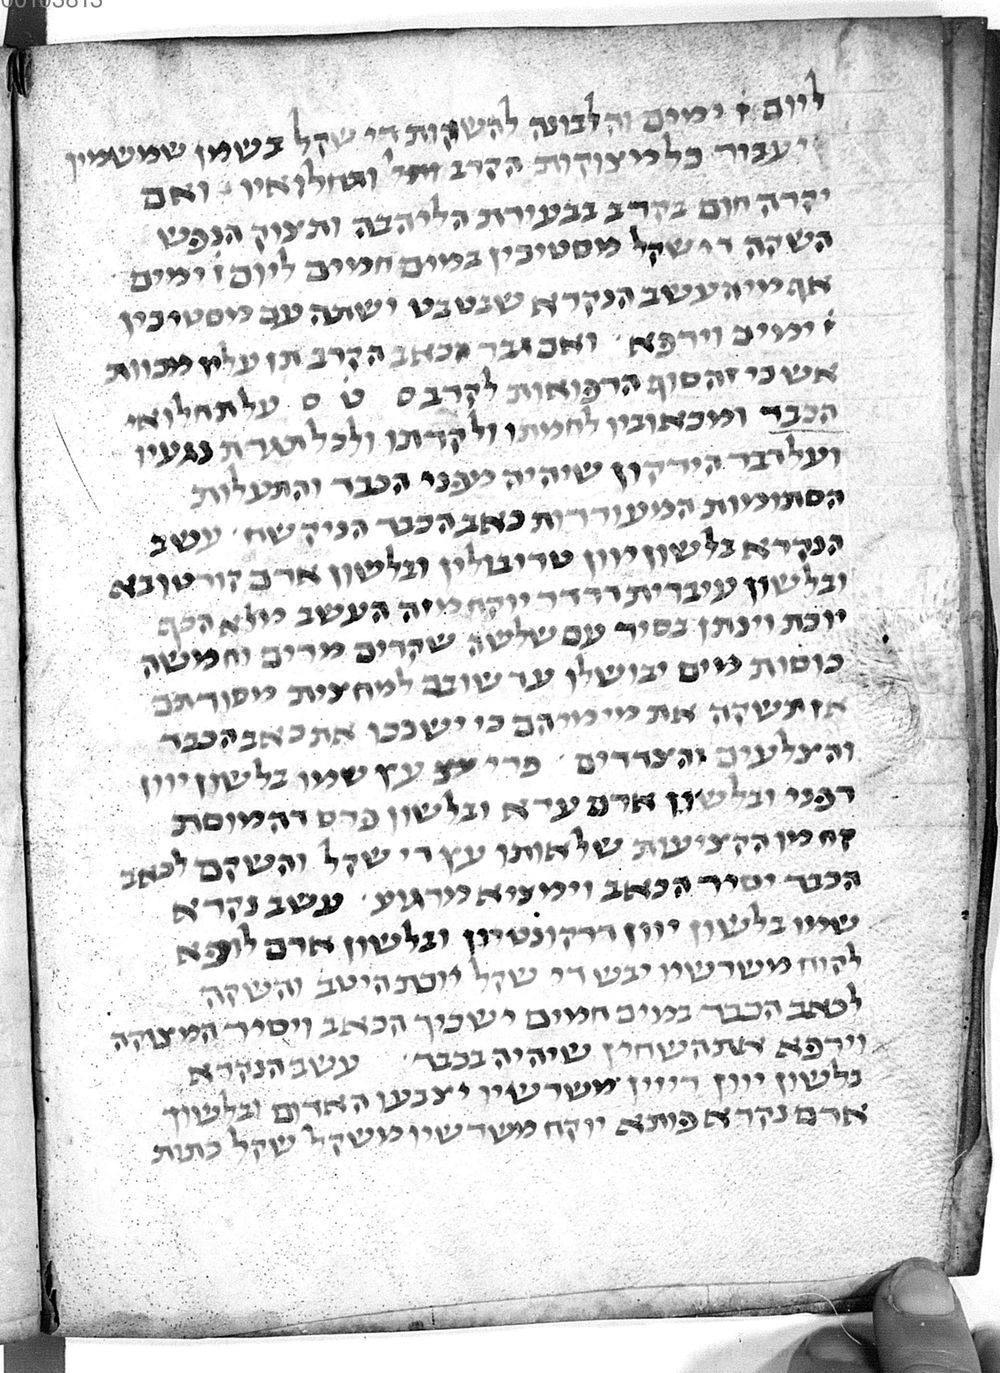 00103813
ליום ז ימים והלבונה להשקות די שקל בשמן שמשמין
יעביר כל מצוקות הקרב ותחלואיו ואם
יקרה חום בקרב בבעירת הליהבה ותצוק הנפש
השקה די שקל מסטיכין במים חמים ליום ז ימים
אף מי העשב הנקרא שבטבט ישתה עם מסטיכין
ז ימים וירפא ואם גבר מכאב הקרב תן עליו מכוות
אש כי זה סוף הרפואות לקרב ס ט ס על תחלואי
הכבד ומכאוביו לחמתו ולקרתו ולכל תגרת נגעיו
ועל דבר הירקון שיהיה מפני הכבד והתעלות
הסתומות המעוררות כאב הכבד הניקשח עשב
הנקרא בלשון יוון טריבולין ובלשון ארם קורטובא
ובלשון עיברית דרדר יוקח מזה העשב מלא הכף
יוכת וינתן בסיר עם שלשה שקדים מרים וחמשה
כוסות מים יבושלו עד שובם למחצית מסורתם
אז תשקה את מימיהם כי ישככו את כאב הכבד
והצלעים והצדדים פרי עץ שמו בלשון יוון
דפני ובלשון ארם ערא ובלשון פרס דהמוסת
קח מן הקציעות של אותו עץ די שקל והשקם לכאב
הכבד יסיר הכאב וימציא מרגוע עשב נקרא
שמו בלשון יוון דרקונטיון ובלשון ארם לופא
לקוח משרשיו יבש די שקל יוכת היטב והשקה
לכאב הכבד במים חמים ישכיך הכאב ויסיר המצוקה
וירפא את השחין שיהיה בכבד עשב הנקרא
בלשון יוון דייון משרשיו יצבעו האדום ובלשון
ארם נקרא פותא יוקח משרשיו משקל שקל כתות